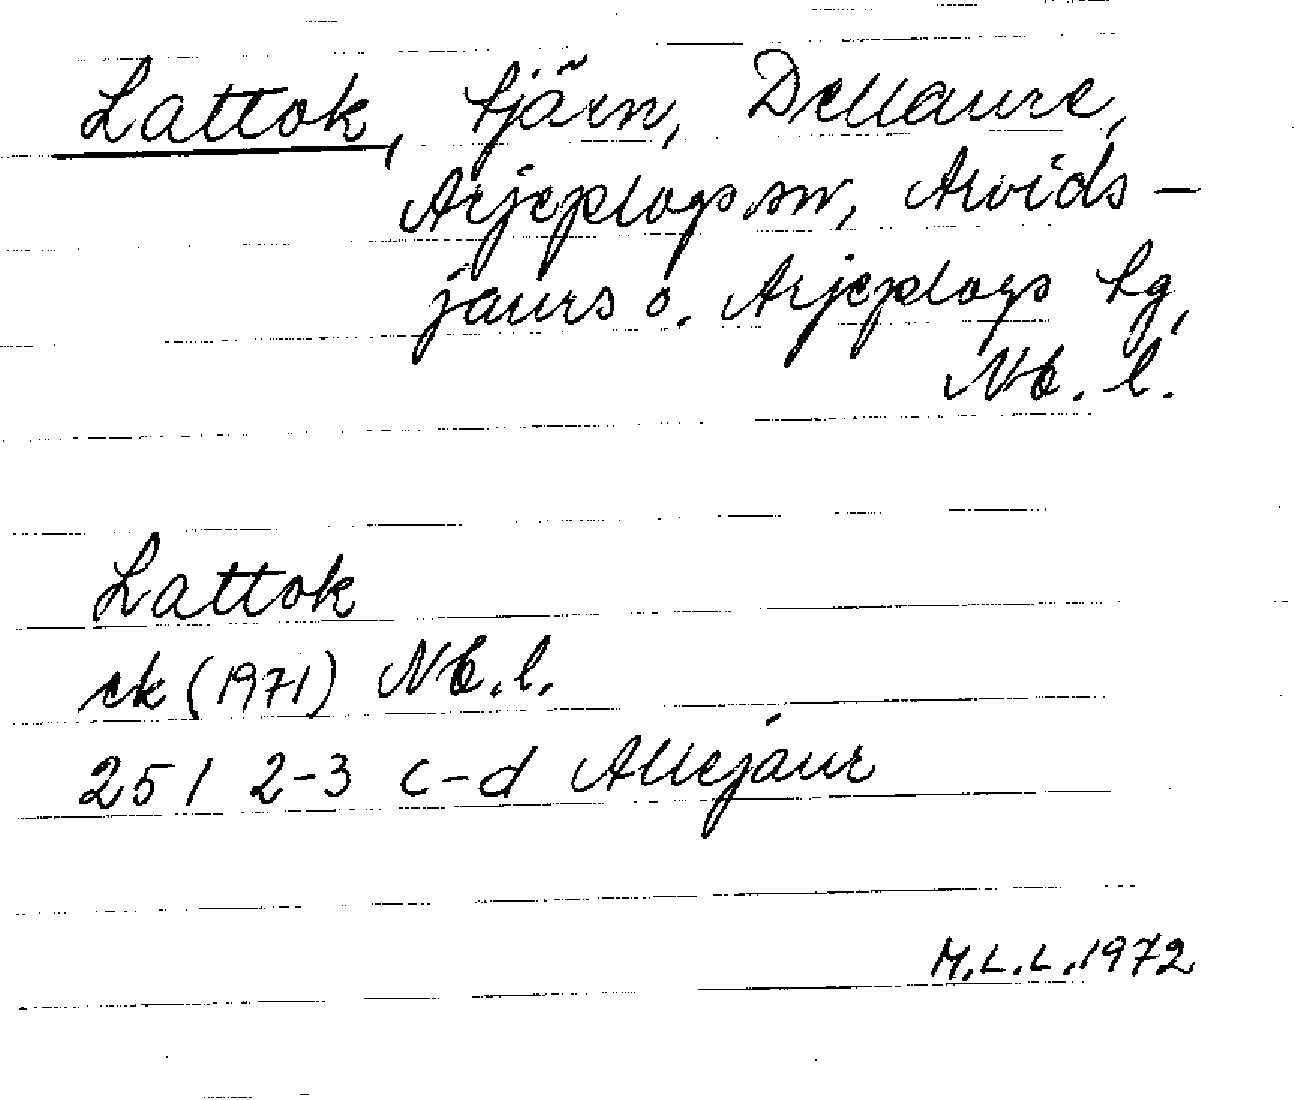 Lattok, tjärn, Dellaure,
Arjeplogs sn, Arvids-
jaurs o. Arjeplogs tg,
Nb. l.
Lattok
ek (1971) Nb. l.
25 I 2-3 c-d Allejaur
M.L.L. 1972